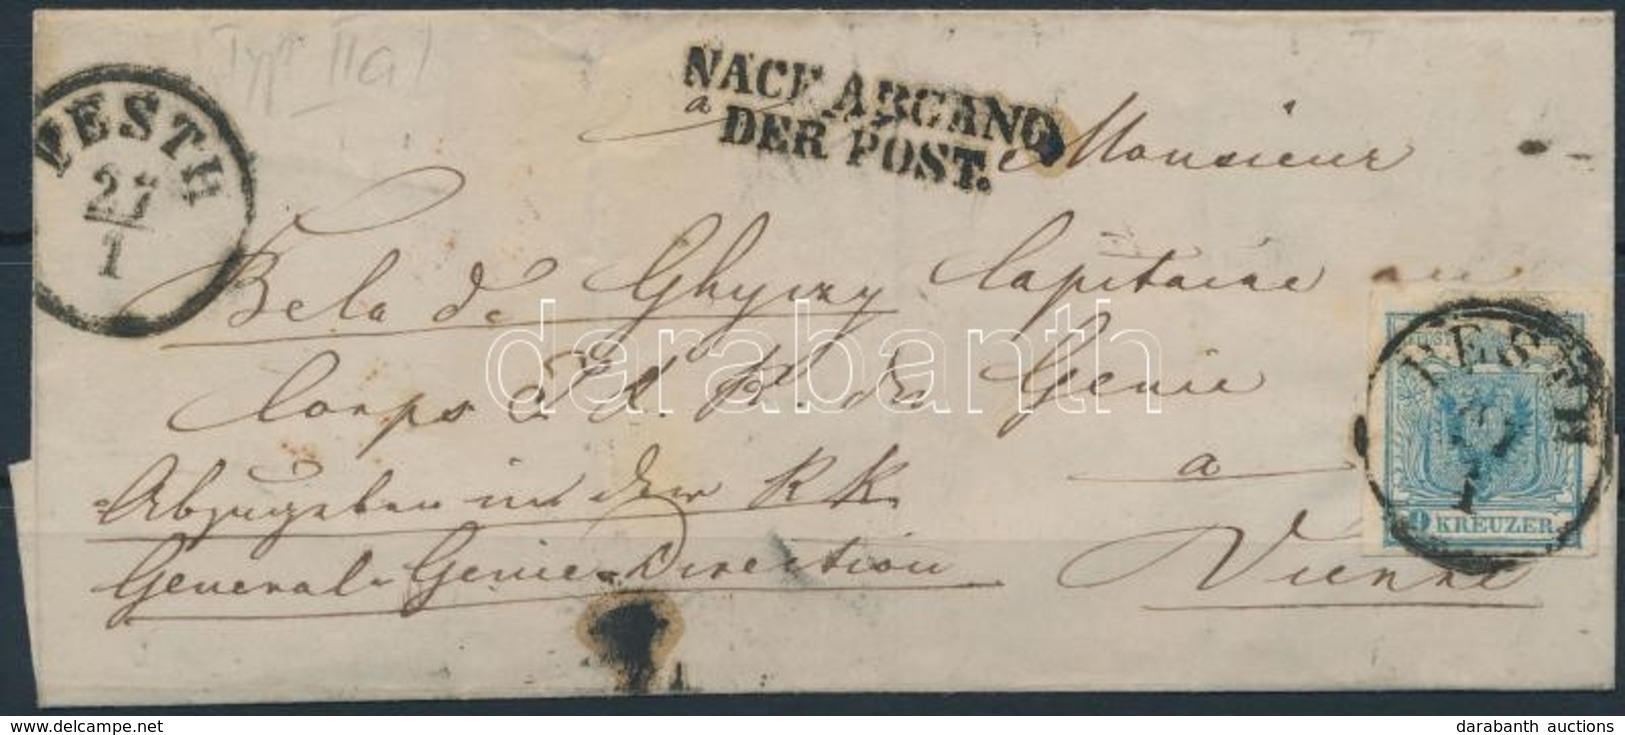 Typ IIa!
NACH ABGANG
DER POST.
PESTH
27
1
a Monsieur
Bela de Ghyczy Capitaine au
Corps I. & R. du Genie
a
Abzugeben in der KK
General-Genie-Direction
Vienne
PESTH
1
9 KREUZER
darabanth
www.delcampe.net
darabanth auctions